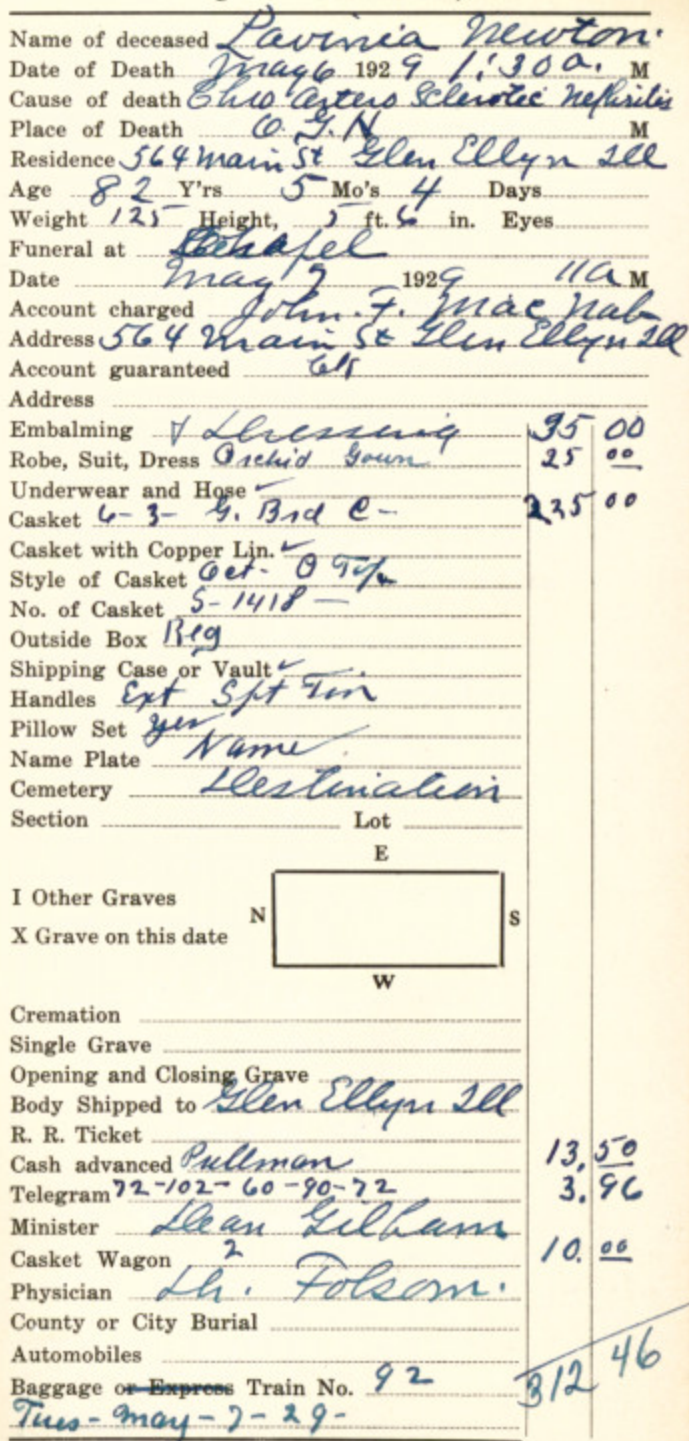 Name of deceased Lavinia Newton.
Date of Death May 6 1929 1:30 a. M
Cause of death Chro Artero Sclerotic Nephritis
Place of Death O. G. H M
Residence 564 Main St Glen Ellyn Ill
Age 82 Y'rs 5 Mo's 4 Days
Weight 125 Height, 5 ft. 6 in. Eyes
Funeral at Chapel
Date May 7 1929 11 a M
Account charged John. F. Mac Nab
Address 564 Main St Glen Ellyn Ill
Account guaranteed
Address
Embalming & Dressing 35 00
Robe, Suit, Dress Orchid Gown 25 00
Underwear and Hose ✓
Casket 6-3- G. Brd C- 225 00
Casket with Copper Lin. ✓
Style of Casket Oct- O Top
No. of Casket S-1418 -
Outside Box Reg
Shipping Case or Vault ✓
Handles Ext Spt Tin
Pillow Set yes
Name Plate Name
Cemetery Destination
Section Lot
E
I Other Graves
N S
X Grave on this date
W
Cremation
Single Grave
Opening and Closing Grave
Body Shipped to Glen Ellyn Ill
R. R. Ticket
Cash advanced Pullman 13.50
Telegram 72-102-60-90-72 3.96
Minister Dean Gilham
Casket Wagon 2 10.00
Physician Dr. Folsom.
County or City Burial
Automobiles
Baggage or Express Train No. 92 312 46
Tues- May-7-29-